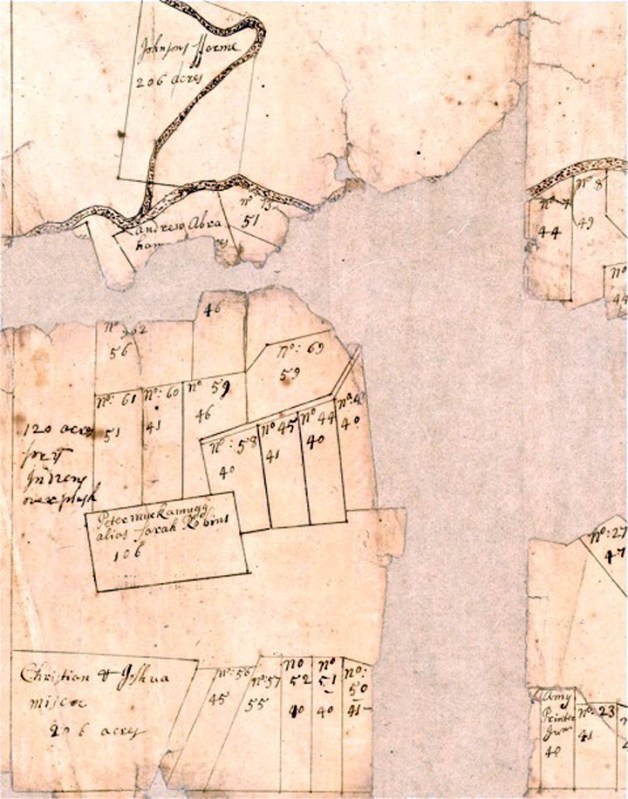 Johnsons Farme
206 acres
Andrew Abra
ham
51
No 7
44
No 8
49
No
44
46
No 62
56
No: 69
59
No: 61
51
No: 60
41
No 59
46
No: 58
40
No 45
41
No 44
40
40
120 acres
for ye
Indyens
overplush
Peter Muckamugg
alios Sarah Robins
106
No: 27
47
Christian & Joshua
Misco
206 acres
No: 56
45
No 57
55
No
52
40
No
51
40
No:
50
41
Amy
Printer
Junr
40
No: 23
41